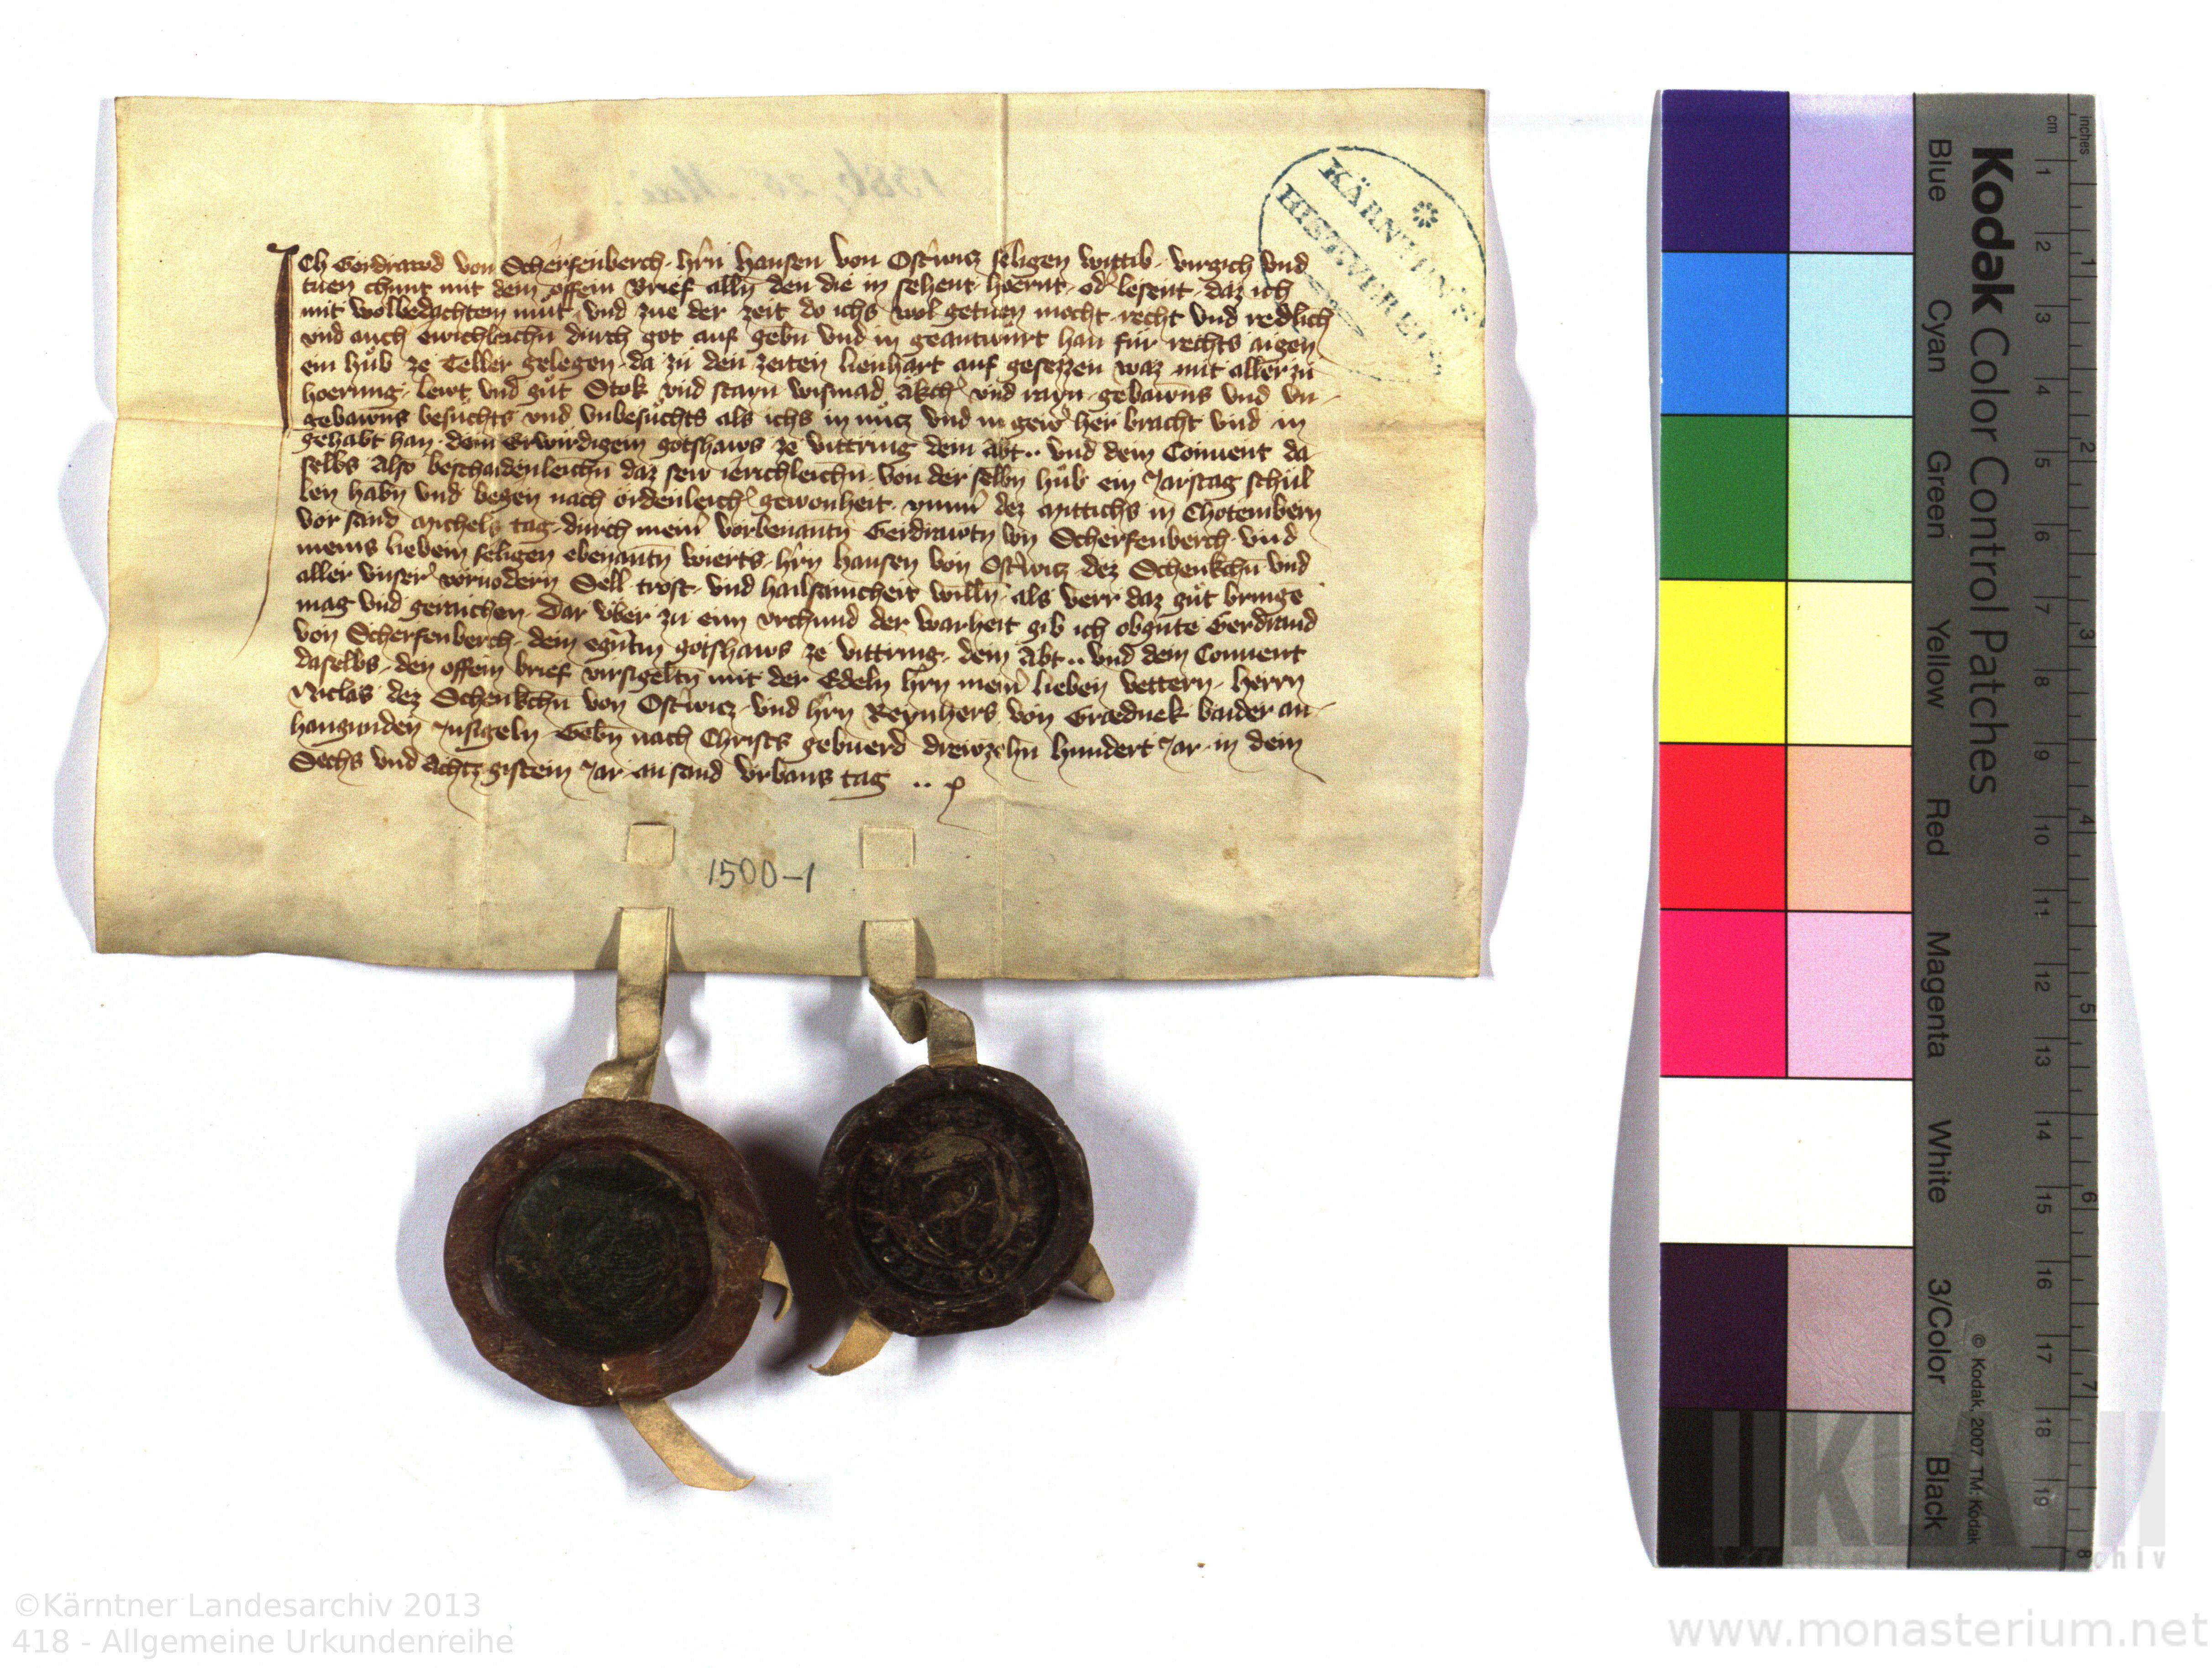 Ich Gerdrawd von Scherfenberch hˀrn Hansen von Ostˀwicz seligen wittib virgich vnd
tuen chunt mit dem offem Brief allñ den die in sehent hoernt odˀ lesent daz ich
mit wolbedachtem můt vnd zue der zeit do ichs wol getuen mocht recht vnd redlich
vnd auch ewichleichñ durch got auf gebñ vnd in geantwurt han für rechts aigen
ein hůb ze Teller gelegen da zu den zeiten Lienhart auf gesezzen waz mit aller zu
hoerung lewt vnd gůt Stok vnd stayn wismad Akchˀ vnd rayn gebawns vnd vn-
gebawns besuchts vnd vnbesuchts als ichs in nucz vnd in gewˀ her bracht vnd in
gehabt han dem Erwirdigem gotshaws ze Vittring dem Abt .. vnd dem Conuent da
selbs Also beschaidenleichñ daz sew ierichleichñ von der selbñ hůb ein Jarstag schul
len habñ vnd begen nach ordenleichˀ gewonheit ymmˀ dez Mittichs in Chotembern
vor sand Michels tag durch meinˀ vorbenantñ Gerdrawtñ von Scherfenberch vnd
meins liebem seligen ebenantñ wierts hˀrn Hansen von Ostˀwicz dez Schenkchñ vnd
aller vnserˀ voruodern Sell trost vnd hailsamcheit willñ als verr daz gůt bringe
mag vnd geraichen Dar vber zu eim vrchund der warheit gib ich obgñte Gerdraud
von Scherfenberch dem egñtm gotshaws ze Vittring dem Abt .. vnd dem Conuent
daselbs den offem brief virsigeltñ mit der Edeln hˀrn meinˀ lieben vettern Herrn
Niclas dez Schenkchñ von Ostˀwicz vnd hˀrn Reynhers von Graednek baider an-
hangunden Insigeln Gebñ nach Christs gebuerd drewzehñ hundert Jar in dem
Sechs vnd Achtzgistem Jar an sand Vrbans tag ..
1500-1
KÄRNTEN'S
HIST. VEREIN
Kodak Color Control Patches
Blue Cyan Green Yellow Red Magenta White 3/Color Black
© Kodak, 2007 TM: Kodak
inches 1 2 3 4 5 6 7 8
cm 1 2 3 4 5 6 7 8 9 10 11 12 13 14 15 16 17 18 19
KLA
©Kärntner Landesarchiv 2013
418 - Allgemeine Urkundenreihe
www.monasterium.net